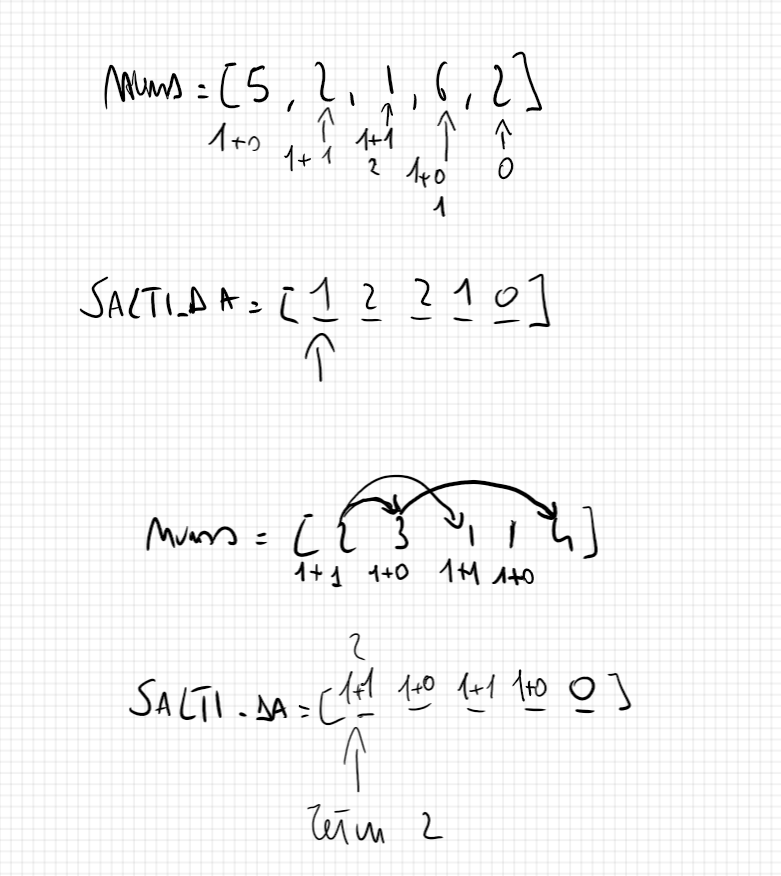 nums = [5, 2, 1, 6, 2]
1+0 1+1 1+1 1+0 0
2 1
SALTI_DA = [1 2 2 1 0]
nums = [2 3 1 1 4]
1+1 1+0 1+1 1+0
2
SALTI_DA = [1+1 1+0 1+1 1+0 0]
return 2